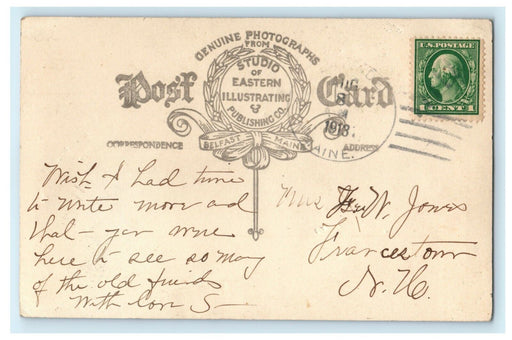 GENUINE PHOTOGRAPHS
FROM
STUDIO
OF
EASTERN
ILLUSTRATING
&
PUBLISHING CO.
BELFAST MAINE
Post Card
CORRESPONDENCE
ADDRESS
AUG
8
1913
MAINE.
U.S. POSTAGE
1 CENT 1
Wish I had time
to write more and
that you were
here to see so many
of the old friends
With Love S
Mrs W. Jones
Francestown
N. H.